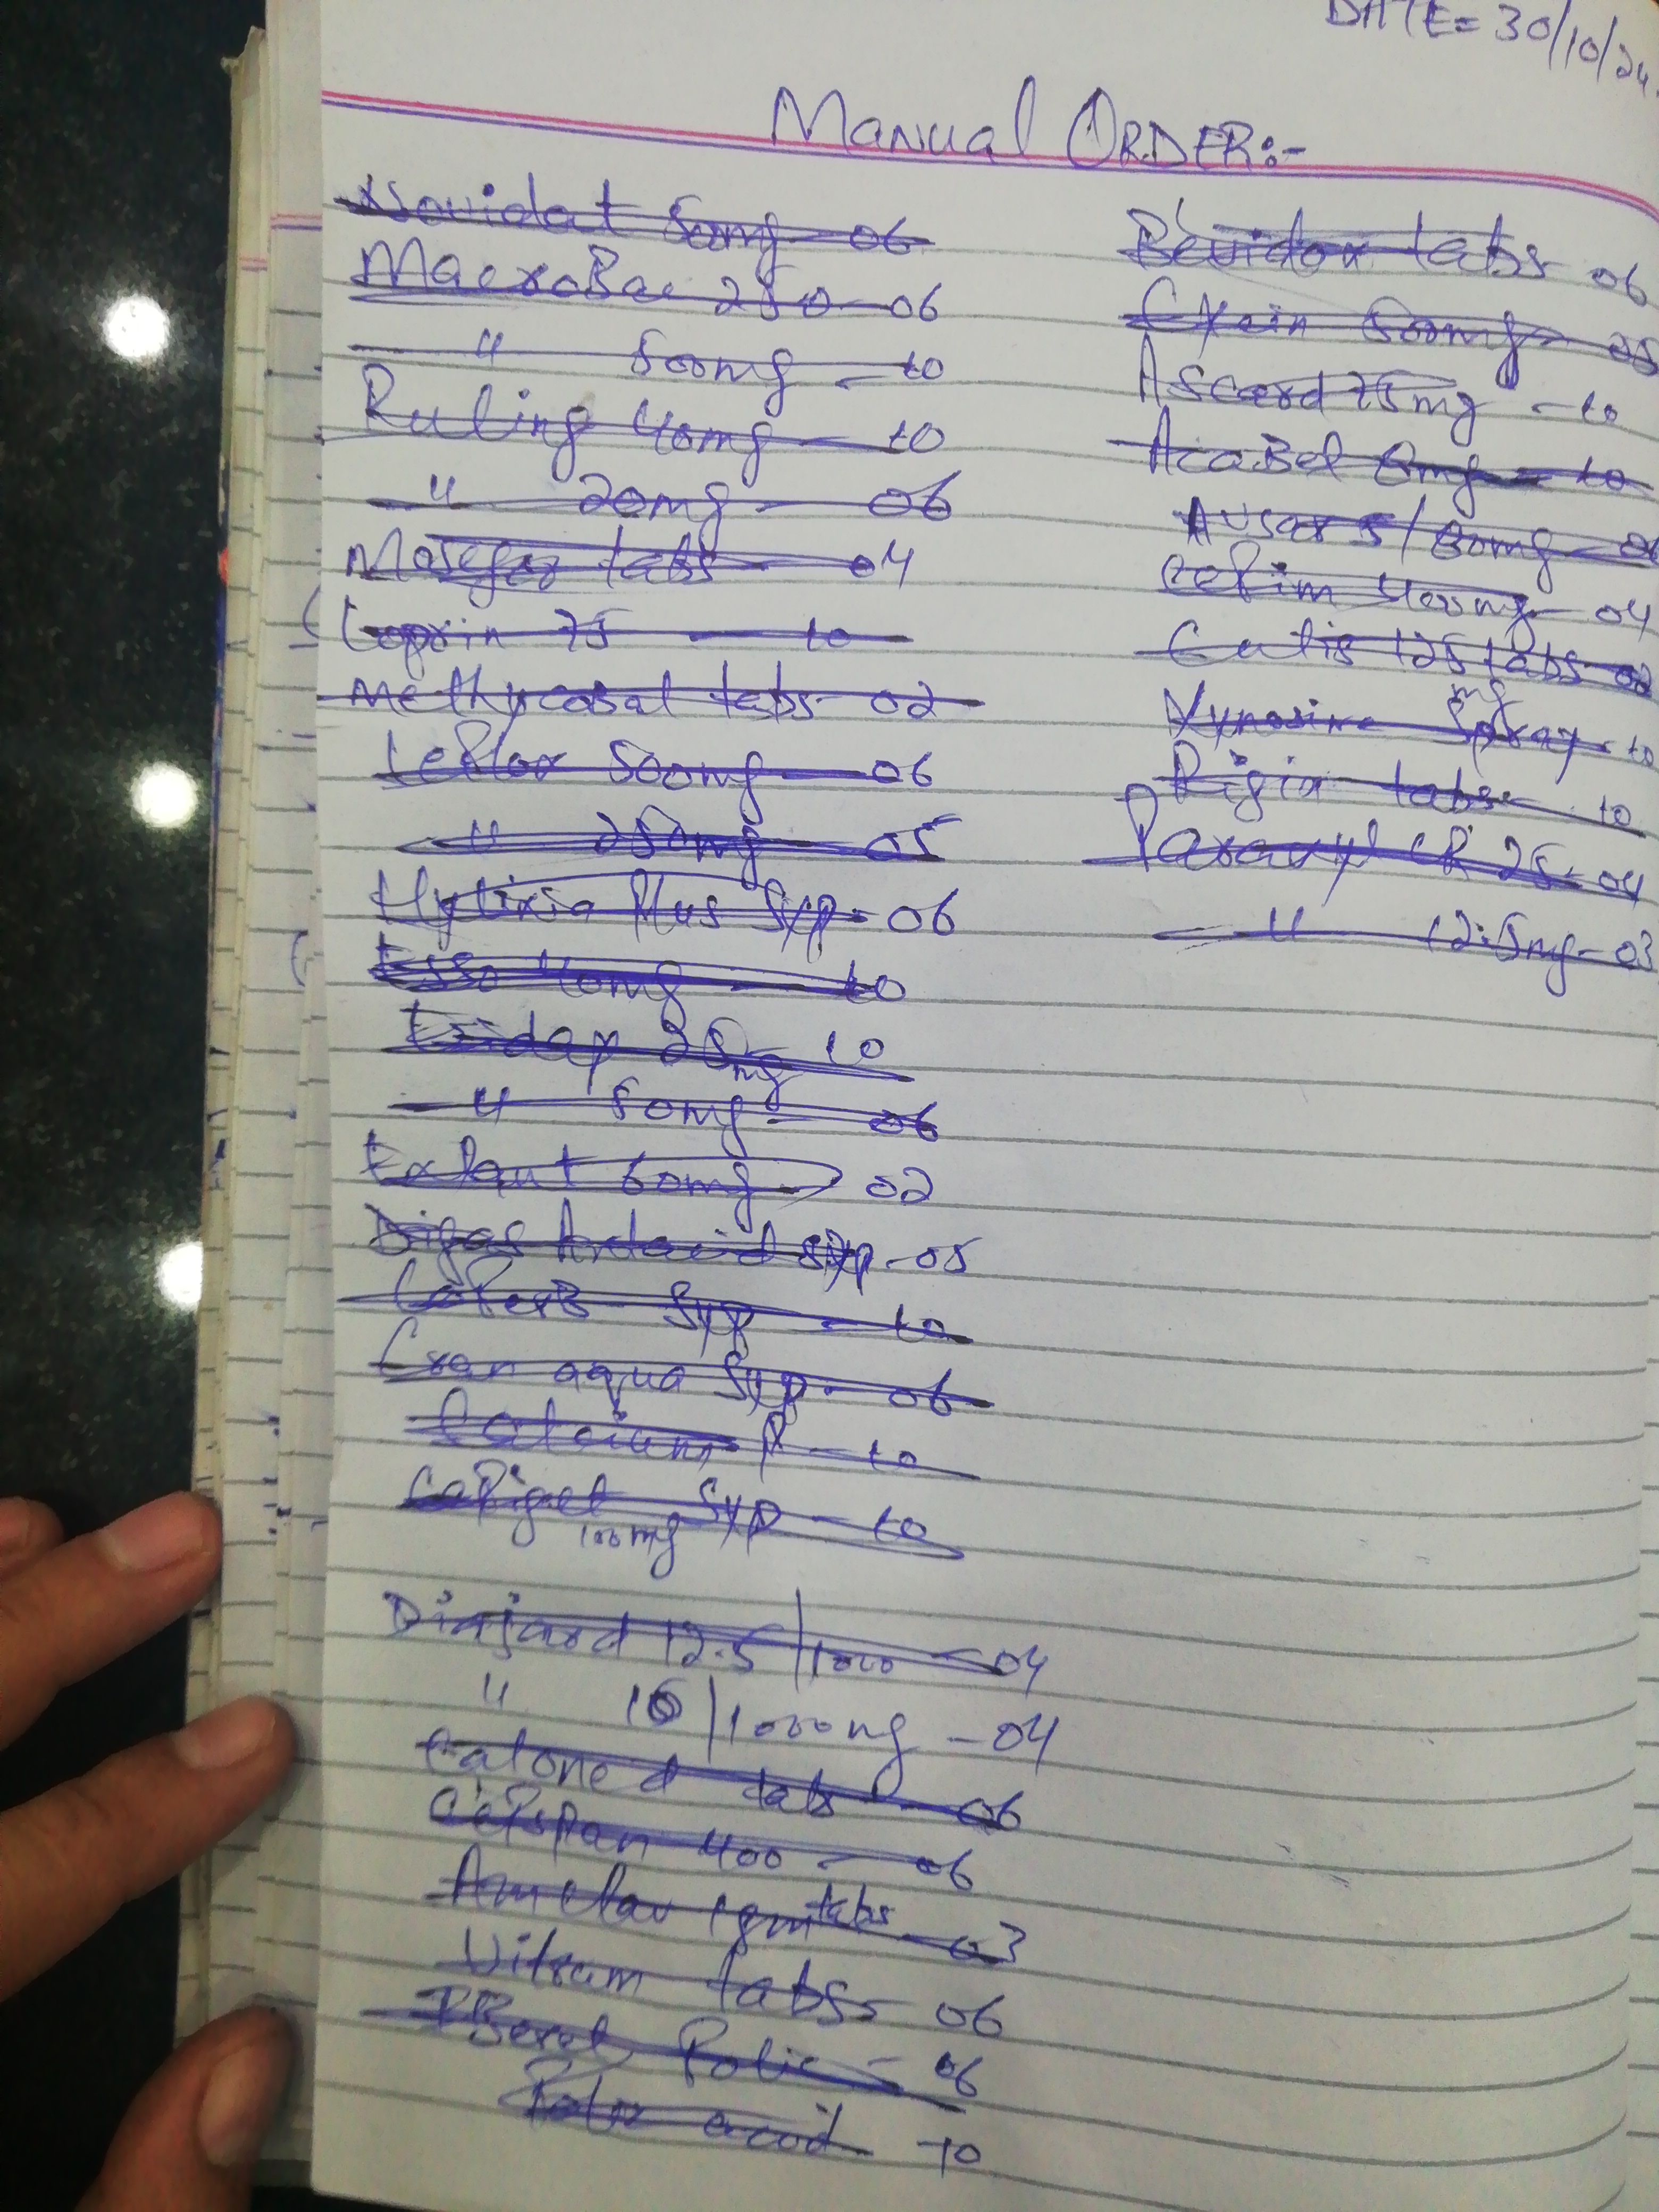 DATE= 30/10/24.
Manual ORDER:-
Novidat 500mg - 06
MacroBac 250 - 06
" 500mg - 10
Ruling 40mg - 10
" 20mg - 06
tabs - 04
Loprin 75 - 10
Methycobal tabs - 02
Leflox 500mg - 06
" 250mg - 05
Hylixia Plus Syp - 06
Esso 40mg - 10
25mg - 10
" 50mg - 06
60mg - 02
Digas Antacid Syp - 05
Syp - 10
Cran aqua Syp - 06
Calcium P - 10
Cefiget Syp - 10
100mg
Diajard 12.5/1000 - 04
" /1000mg - 04
tabs - 06
Cefspan 400 - 06
Amclav 1gm tabs - 03
Vitrum tabs - 06
Folic - 06
acid 10
Bevidox tabs 06
Cyxin 500mg - 05
Ascard 75mg - 10
AcaBel 8mg - 10
Avsar 5/80mg -
Cefim 400mg - 04
125 tabs - 02
mg
Xynosine Spray - 10
Rigix tabs - 10
Paraxyl CR 25 - 04
" 12.5mg - 03